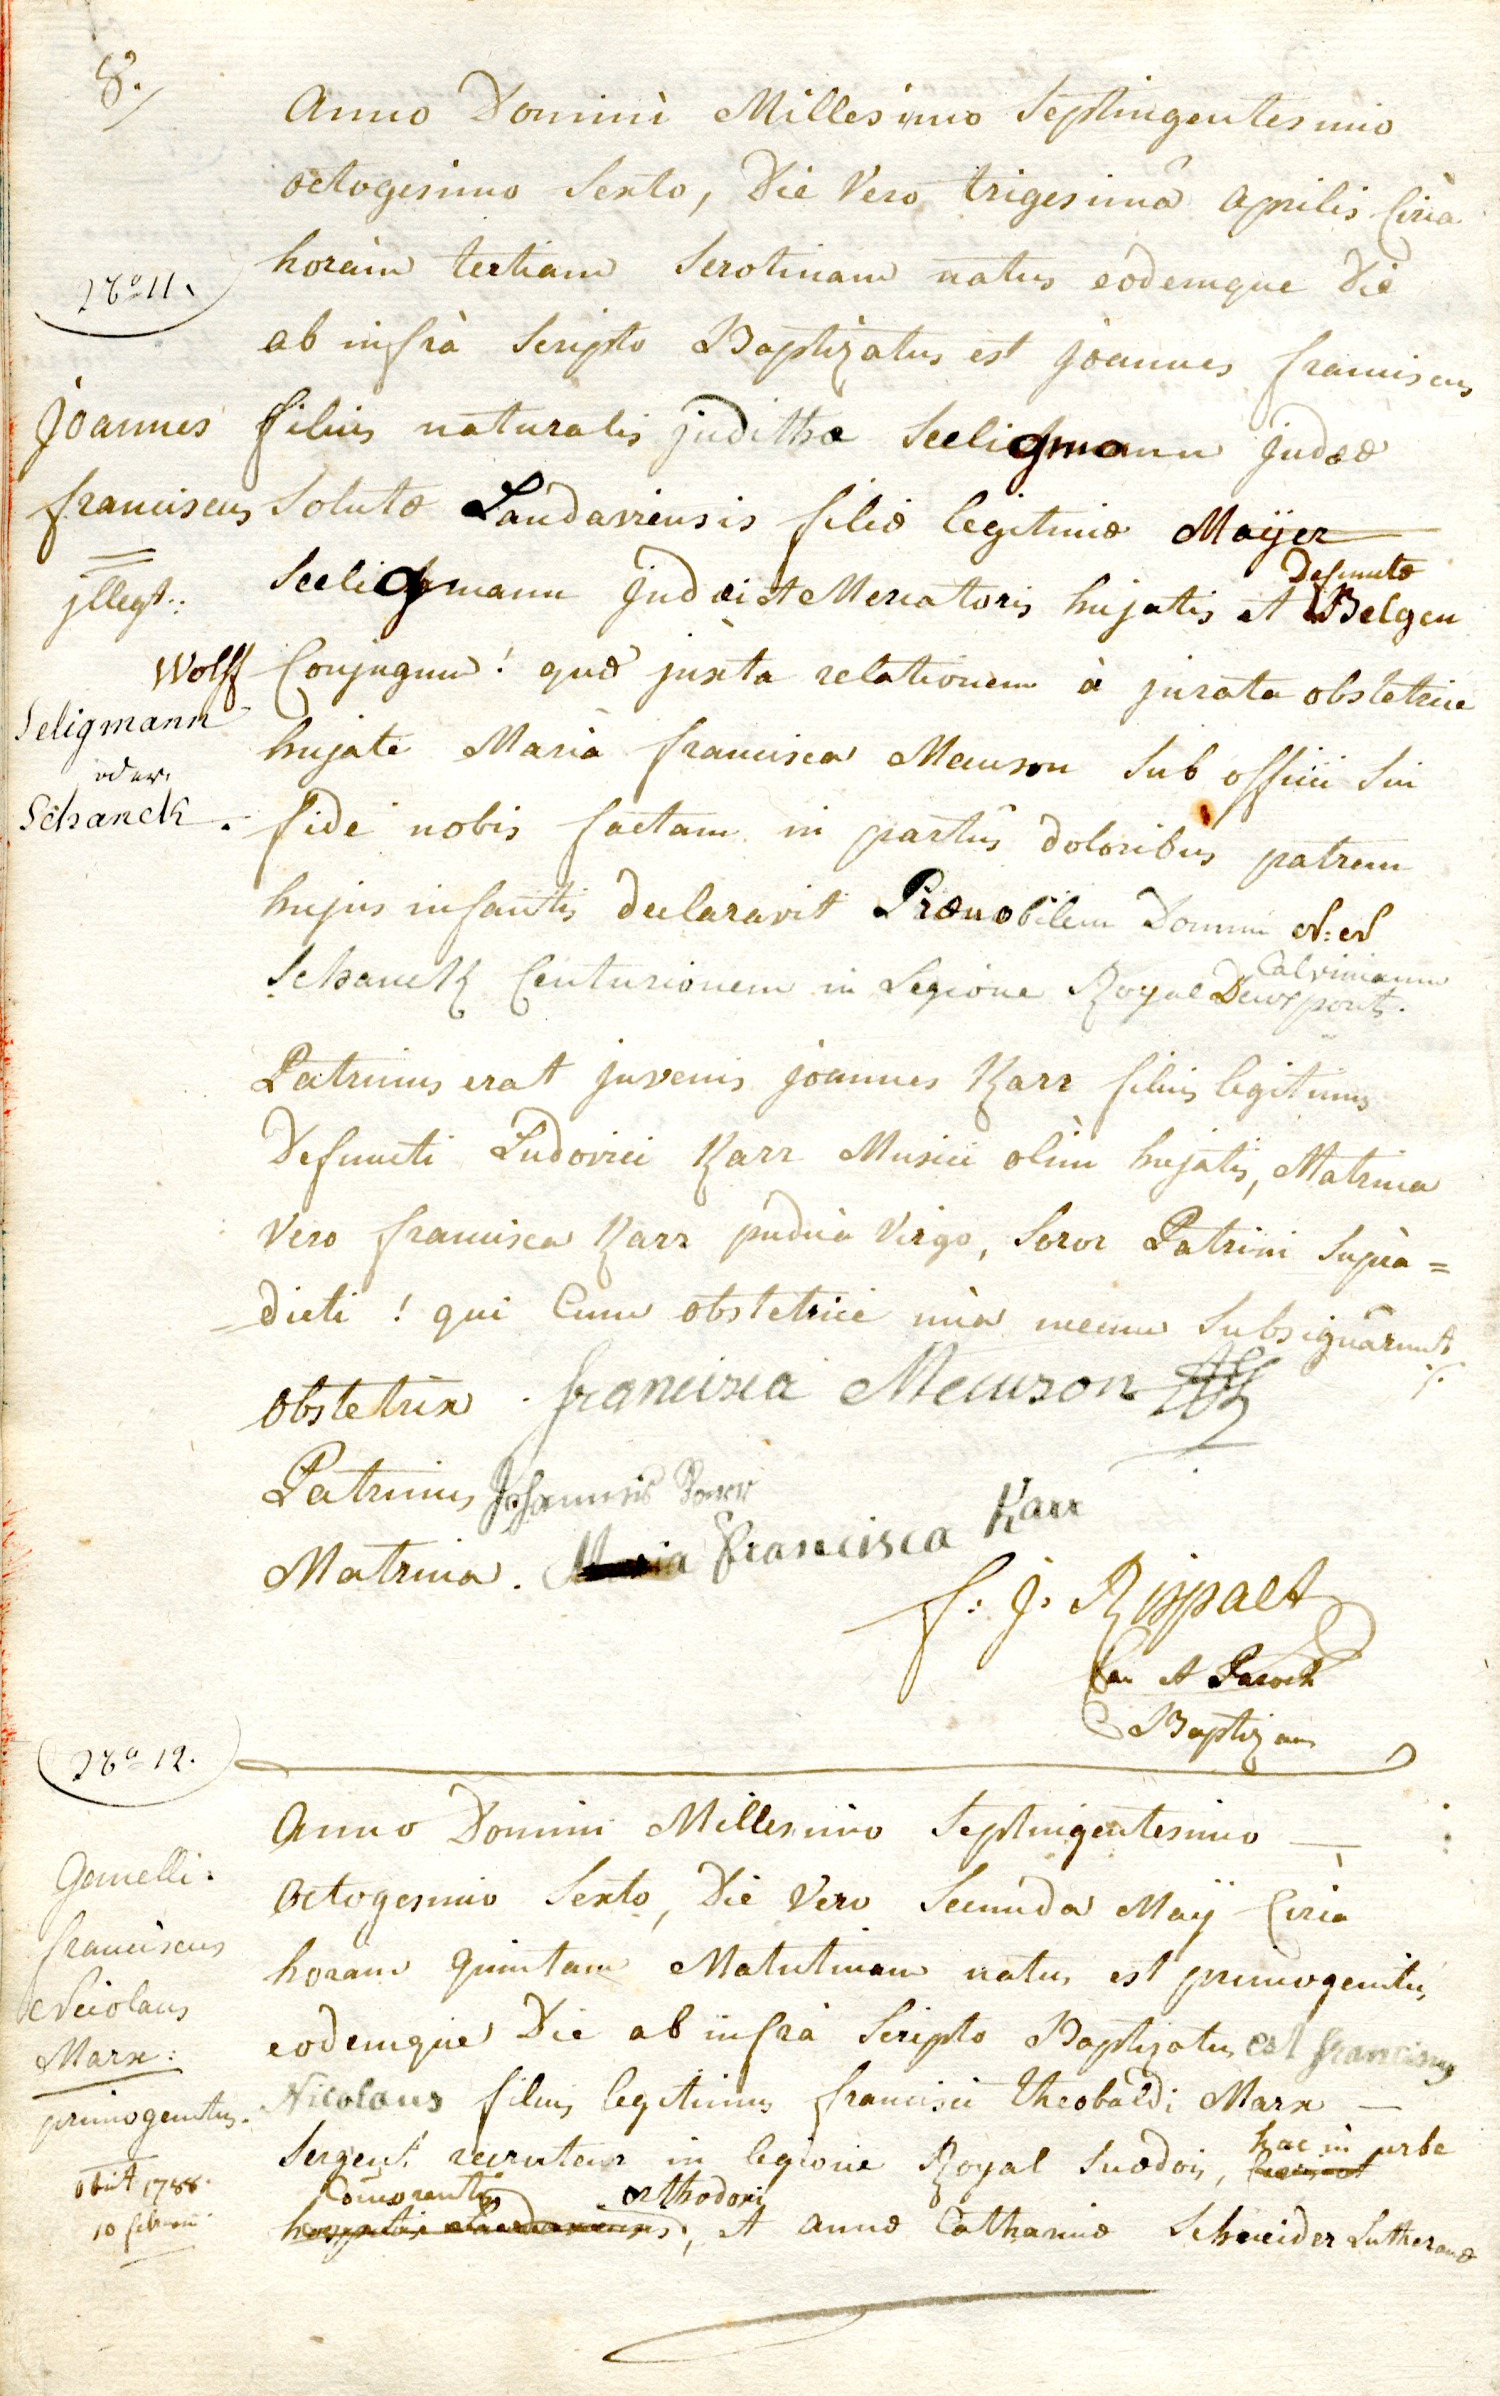 8.
Anno Domini Millesimo Septingentesimo
octogesimo Sexto, Die Vero trigesimâ Aprilis Circa
Nº 11.
horam tertiam Serotinam natus eodemque Die
ab infrà Scripto Baptizatus est Joannes franciscus
Joannes
franciscus
jllegt:
Wolff
Seligmann
oder
Schanck.
filius naturalis judithæ Seeligmann Judææ
Solutæ Landaviensis filiæ legitimæ Maÿer
Seeligmann Judæi et Mercatoris hujatis et Defunctæ Belgen
Conjugum! quæ juxta relationem à jurata obstetrice
hujate Mariâ francisca Meuson Sub officii Sui
fide nobis factam in partûs doloribus patrem
hujus infantis declaravit Prænobilem Domin
Schanck Centurionem in Legione Royal Deuxponts. Calvinianum
Patrinus erat juvenis joannes Karr filius legitimus
Defuncti Ludovici Karr Musici olim hujatis, Matrina
Vero francisca Karr pudica Virgo, Soror Patrini Suprà=
=dicti! qui Cum obstetrice unà mecum Subsignârunt
Obstetrix francisca Meuson
Patrinus Johannes Karr
Matrina. Maria Francisca Karr
f: J. Rippaet
Can et Paroch
Baptizans
Nº 12.
Gemelli:
franciscus
Nicolaus
Marx:
primogenitus.
obiit 1788.
10 februarii
Anno Domini Millesimo Septingentesimo
Octogesimo Sexto, Die Vero Secunda Maÿ Circà
horam Quintam Matutinam natus est primogenitus
eodemque Die ab infrà Scripto Baptizatus est franciscus
Nicolaus filius legitimus francisci Theobaldi Marx
Sergent recruteur in legione Royal Suedois, hac in urbe
Comorantis orthodoxi, et Annæ Catharinæ Schneider Lutheranæ